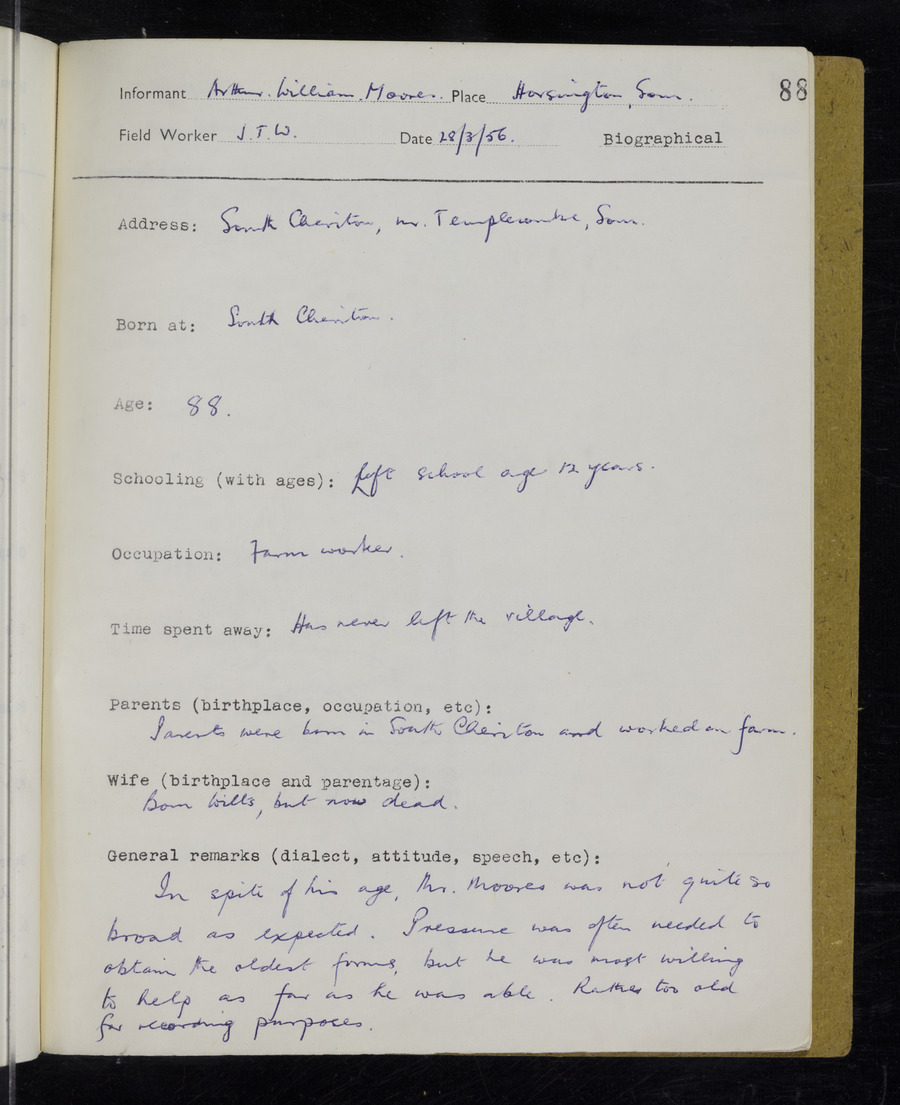 Informant Arthur. William. Moores. Place Horsington, Som. 88
Field Worker J.T.W. Date 28/3/56. Biographical
Address: South Cheriton, nr. Templecombe, Som.
Born at: South Cheriton.
Age: 88.
Schooling (with ages): Left school age 12 years.
Occupation: Farm worker.
Time spent away: Has never left the village.
Parents (birthplace, occupation, etc):
Parents were born in South Cheriton and worked on farm.
Wife (birthplace and parentage):
Born Wilts, but now dead.
General remarks (dialect, attitude, speech, etc):
In spite of his age, Mr. Moores was not quite so
broad as expected. Pressure was often needed to
obtain the oldest forms, but he was most willing
to help as far as he was able. Rather too old
for recording purposes.